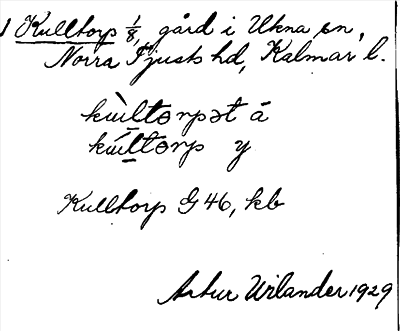 1 Kulltorp 1/8, gård i Ukna sn,
Norra Tjusts hd, Kalmar l.
kùltɵrpət ä
kúltɵrp y
Kulltorp G 46, kb
Artur Wilander 1929